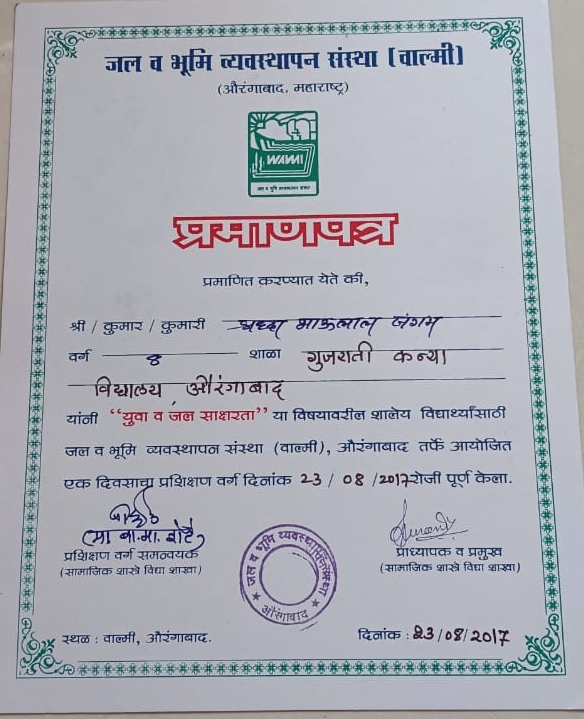 जल व भूमि व्यवस्थापन संस्था (वाल्मी)
(औरंगाबाद, महाराष्ट्र)
WALMI
जल व भूमि व्यवस्थापन संस्था
प्रमाणपत्र
प्रमाणित करण्यात येते की,
श्री / कुमार / कुमारी जंगम
वर्ग 8 शाळा गुजराती कन्या
विद्यालय, औरंगाबाद
यांनी “युवा व जल साक्षरता” या विषयावरील शालेय विद्यार्थ्यांसाठी
जल व भूमि व्यवस्थापन संस्था (वाल्मी), औरंगाबाद तर्फे आयोजित
एक दिवसाचा प्रशिक्षण वर्ग दिनांक 23 / 08 / 2017 रोजी पूर्ण केला.
प्रशिक्षण वर्ग समन्वयक
(सामाजिक शास्त्रे विद्या शाखा)
जल व भूमि व्यवस्थापन संस्था
औरंगाबाद
प्राध्यापक व प्रमुख
(सामाजिक शास्त्रे विद्या शाखा)
स्थळ : वाल्मी, औरंगाबाद.
दिनांक : 23/08/2017